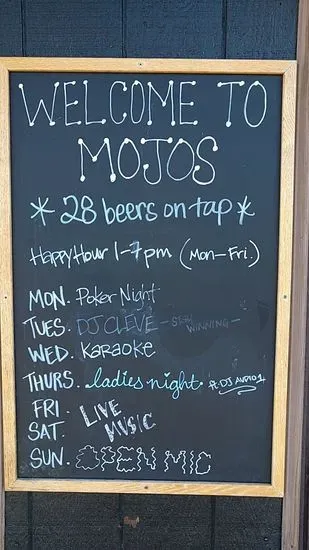 WELCOME TO
MOJOS
* 28 beers on tap *
Happy Hour 1-7pm (Mon-Fri)
MON. Poker Night
TUES. DJ CLEVE - STILL WINNING -
WED. Karaoke
THURS. ladies night ft DJ AUDIO 1
FRI.
SAT. LIVE MUSIC
SUN. OPEN MIC